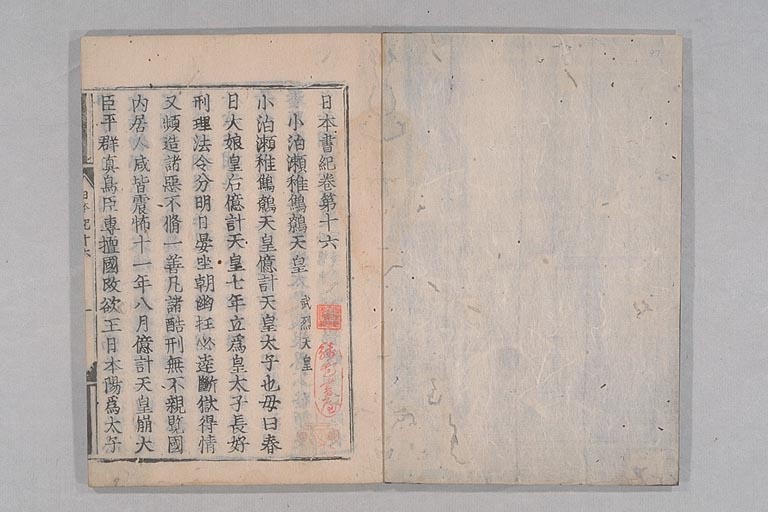 日本書紀卷第十六
小泊瀬稚鷦鷯天皇 武烈天皇
小泊瀬稚鷦鷯天皇億計天皇太子也母曰春
日大娘皇后億計天皇七年立爲皇太子長好
刑理法令分明日晏坐朝幽枉必逹斷獄得情
又頻造諸惡不脩一善凡諸酷刑無不親覽國
内居人咸皆震怖十一年八月億計天皇崩大
臣平群真鳥臣専擅國政欲王日本陽爲太子
日本紀十六